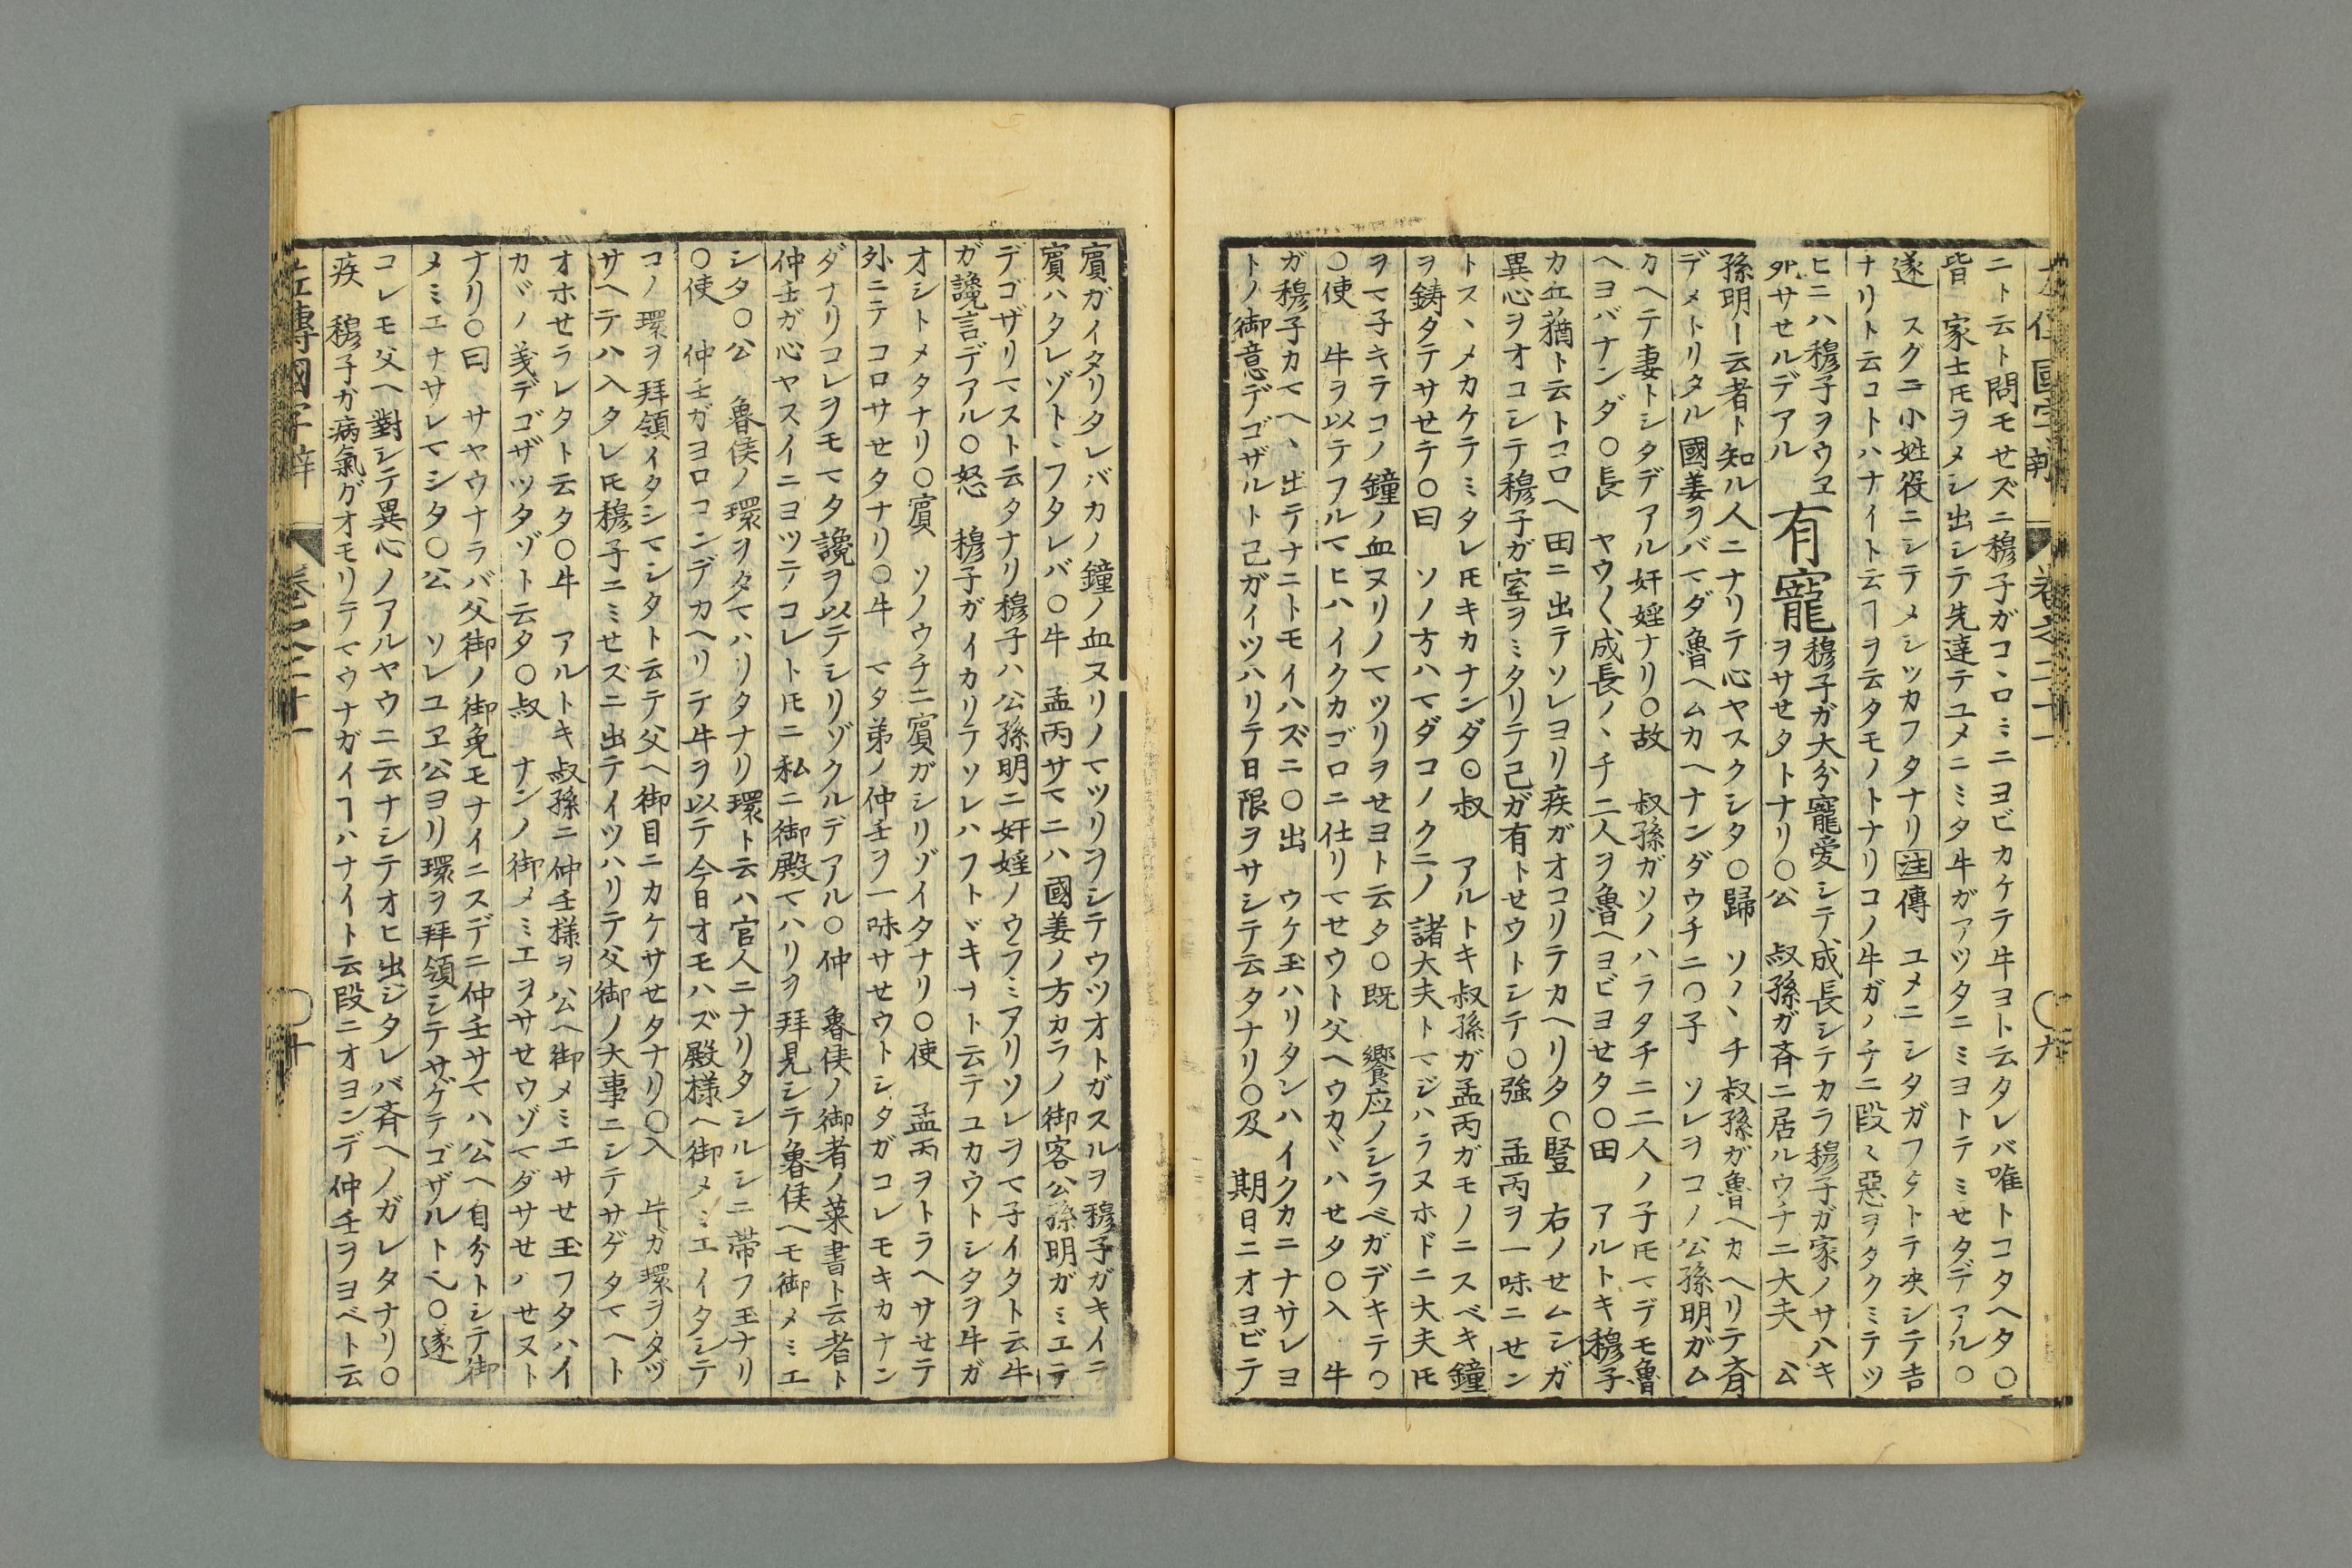 左傳國字辯 卷之二十一 〇九
ニト云ト問モせズニ穆子ガコヽロミニヨビカケテ牛ヨト云タレバ唯トコタヘタ〇
皆 家士𪜈ヲメシ出シテ先達テユメニミタ牛ガアツタニミヨトテミせタデアル〇
遂 スグニ小姓役ニシテメシツカフタナリ注傳 ユメニシタガフタトテ决シテ吉
ナリト云コトハナイト云ヿヲ云タモノトナリコノ牛ガノチニ段〻惡ヲタクミテツ
ヒニハ穆子ヲウヱ
死サせルデアル
有寵
穆子ガ大分寵愛シテ成長シテカラ穆子ガ家ノサハキ
ヲサせタトナリ〇公 叔孫ガ斉ニ居ルウチニ大夫 公
孫明ト云者ト知ル人ニナリテ心ヤスクシタ〇歸 ソノヽチ叔孫ガ魯ヘカヘリテ斉
デメトリタル國姜ヲバマダ魯ヘムカヘナンダウチニ〇子 ソレヲコノ公孫明ガム
カヘテ妻トシタデアル奸婬ナリ〇故 叔孫ガソノハラタチニ二人ノ子𪜈マデモ魯
ヘヨバナンダ〇長 ヤウ〱成長ノヽチ二人ヲ魯ヘヨビヨせタ〇田 アルトキ穆子
カ丘蕕ト云トコロヘ田ニ出テソレヨリ疾ガオコリテカヘリタ〇豎 右ノせムシガ
異心ヲオコシテ穆子ガ室ヲミタリテ己ガ有トせウトシテ〇強 孟丙ヲ一味ニせン
トスヽメカケテミタレ𪜈キカナンダ〇叔 アルトキ叔孫ガ孟丙ガモノニスベキ鐘
ヲ鋳タテサせテ〇曰 ソノ方ハマダコノクニノ諸大夫トマジハラヌホドニ大夫𪜈
ヲマ子キテコノ鐘ノ血ヌリノマツリヲせヨト云タ〇既 饗应ノシラベガデキテ〇
〇使 牛ヲ以テフルマヒハイクカゴロニ仕リマせウト父ヘウカヾハせタ〇入 牛
ガ穆子カマヘヽ出テナニトモイハズニ〇出 ウケ玉ハリタンハイクカニナサレヨ
トノ御意デゴザルト己ガイツハリテ日限ヲサシテ云タナリ〇及 期日ニオヨビテ
賓ガイタリタレバカノ鐘ノ血ヌリノマツリヲシテウツオトガスルヲ穆子ガキイテ
賓ハタレゾトヽフタレバ〇牛 孟丙サマニハ國姜ノ方カラノ御客公孫明ガミエテ
デゴザリマスト云タナリ穆子ハ公孫明ニ奸婬ノウラミアリソレヲマ子イタト云牛
ガ讒言デアル〇怒 穆子ガイカリテソレハフトヾキナト云テユカウトシタヲ牛ガ
オシトメタナリ〇賓 ソノウチニ賓ガシリゾイタナリ〇使 孟丙ヲトラヘサせテ
外ニテコロサせタナリ〇牛 マタ弟ノ仲壬ヲ一味サせウトシタガコレモキカナン
ダナリコレヲモマタ讒ヲ以テシリゾクルデアル〇仲 魯侯ノ御者ノ莱書ト云者ト
仲壬ガ心ヤスイニヨツテコレト𪜈ニ私ニ御殿マハリヲ拜見シテ魯侯ヘモ御メミエ
シタ〇公 魯侯ノ環ヲタマハリタナリ環ト云ハ官人ニナリタシルシニ帯フ玉ナリ
〇使 仲壬ガヨロコンデカヘリテ牛ヲ以テ今日オモハズ殿様ヘ御メミエイタシテ
コノ環ヲ拜領イタシマシタト云テ父ヘ御目ニカケサせタナリ〇入 牛ガ環ヲタヅ
サヘテハ入タレ𪜈穆子ニミせズニ出テイツハリテ父御ノ大事ニシテサゲタマヘト
オホせラレタト云タ〇牛 アルトキ叔孫ニ仲壬様ヲ公ヘ御メミエサせ玉フタハイ
カヾノ義デゴザツタゾト云タ〇叔 ナンノ御メミエヲサせウゾマダサせハせヌト
ナリ〇曰 サヤウナラバ父御ノ御免モナイニスデニ仲壬サマハ公ヘ自分トシテ御
メミエナサレマシタ〇公 ソレユヱ公ヨリ環ヲ拜領シテサゲテゴザルト也〇遂
コレモ父ヘ對シテ異心ノアルヤウニ云ナシテオヒ出シタレバ斉ヘノガレタナリ〇
疾 穆子ガ病氣ガオモリテマウナガイヿハナイト云段ニオヨンデ仲壬ヲヨベト云
左傳國字辯 卷之二十一 〇十